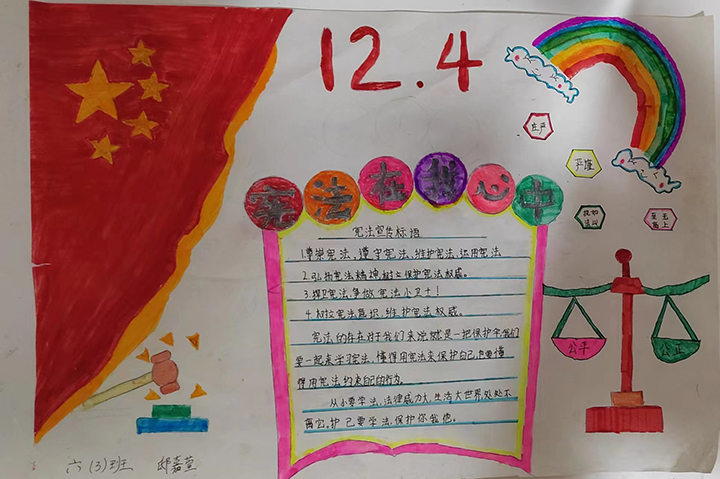 12.4
庄严
严谨
执如
试纠
至无
高上
宪法在我心中
宪法宣传标语
1.尊崇宪法、遵守宪法、维护宪法、运用宪法
2.弘扬宪法精神树立保护宪法权威。
3.捍卫宪法,争做宪法小卫士!
4.树立宪法意识,维护宪法权威。
宪法的存在对于我们来说就是一把保护伞我们
要一起来学习宪法,懂得用宪法来保护自己,也要懂
得用宪法约束自己的行为。
从小要学法,法律威力大,生活大世界处处不
离它,护己要学法,保护你我他。
公平
公正
六(3)班 嘉萱